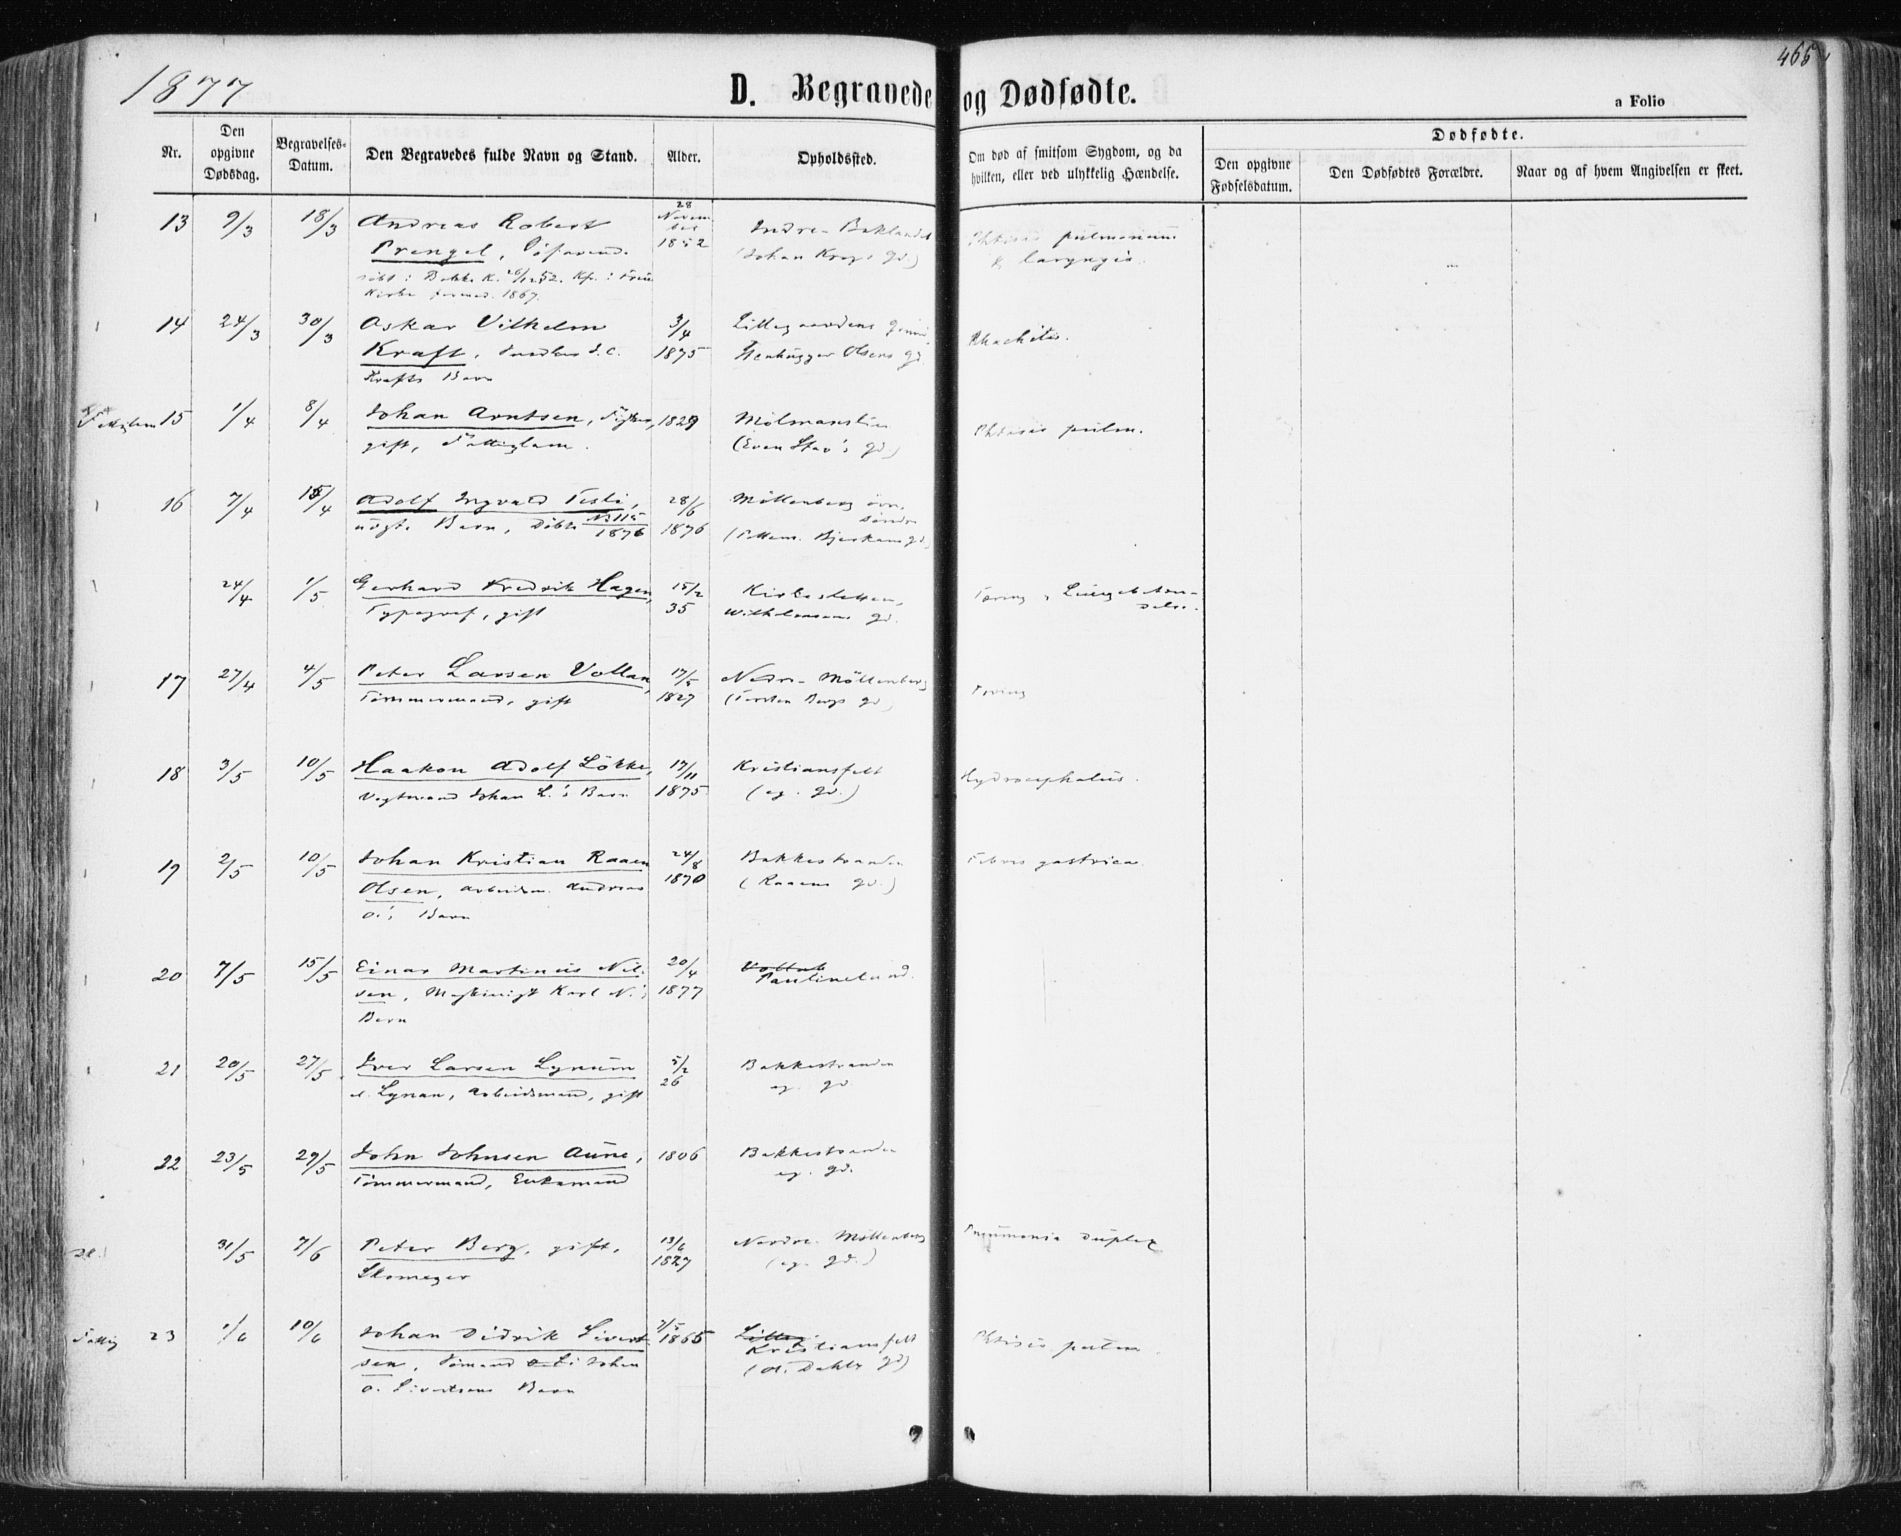 1877
465
D. Begravede og Dødfødte.
a Folio
Nr.
Den opgivne Dødsdag.
Begravelses-Datum.
Den Begravedes fulde Navn og Stand.
Alder.
Opholdssted.
Om død af smitsom Sygdom, og da hvilken, eller ved ulykkelig Hændelse.
Dødfødte.
Den opgivne Fødselsdatum.
Den Dødfødtes Forældre.
Naar og af hvem Angivelsen er skeet.
13 9/3 18/3 Andreas Robert 28 Novem- Indre Baklandet Phtisis pulmonum
Prengel, Söfarende ber 1852 (Johan Krogs Gd.) & laryngis.
döbt i Bakke K. 26/12 52. Kf. i Frue
Kirke 1867.
14 24/3 30/3 Oskar Vilhelm 3/4 Lillegaardens Rhachitis.
Kraft, Snedker J. C. 1875 Stenhugger Olsens gd
Krafts Barn
Fattiglem 15 1/4 8/4 Johan Arntsen, 1829 Mölmanslien Phtisis pulm.
gift, Fattiglem. (Even Stav's Gd.)
16 7/4 15/4 Adolf Ingvald Tesli, 28/6 Möllenberg övre
uægte Barn, Döbte No 115 1876 1876 söndre
(Bjerkans gd.)
24/4 1/5 Gerhard Fredrik Hagen, 15/2 Kirkesletten, Tæring & Lungebetæn-
Typograf, gift 35 Wilhelmsens Gd. delse.
17 27/4 4/5 Peter Larsen Vollan, 17/5 Nedre Möllenberg Tæring
Tömmermand, gift 1827 (Torsten Bergs gd)
18 3/5 10/5 Haakon Adolf Lökke, 17/11 Kristiansfelt Hydrocephalus.
Vogtmand Johan L.'s Barn 1875 (eg. gd.)
19 2/5 10/5 Johan Kristian Raaen 24/8 Bakkestranden Febris gastrica
Olsen, Arbeidsm. Andreas 1870 (Raaens gd.)
O.'s Barn
20 7/5 15/5 Einar Martinus Nil- 20/4 Paulinelund.
sen, Maskinist Karl N.'s 1877
Barn
21 20/5 27/5 Iver Larsen Lynum 5/2 Bakkestranden
el. Lynan, Arbeidsmand, gift 26 eg. gd
22 23/5 29/5 John Johnsen Aune, 1806 Bakkestranden
Tömmermand, Enkemand eg. gd.
31/5 7/6 Peter Berg, gift, 13/6 Nordre Möllenberg Pneumonia duplex
Skomager 1827 (eg. gd.)
Fattig 23 1/6 10/6 Johan Didrik Sivert- 7/5 1865 Kristiansfelt Phtisis pulm
sen, Sömand Johan (O. Dahls gd)
O. Sivertsens Barn